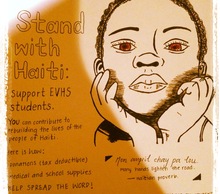 Stand
with
Haiti:
support EVHS
students.
YOU can contribute to
rebuilding the lives of the
people of Haiti.
here is how:
donations (tax deductible)
medical and school supplies
HELP SPREAD THE WORD!
many hands lighten the load.
- haitian proverb.